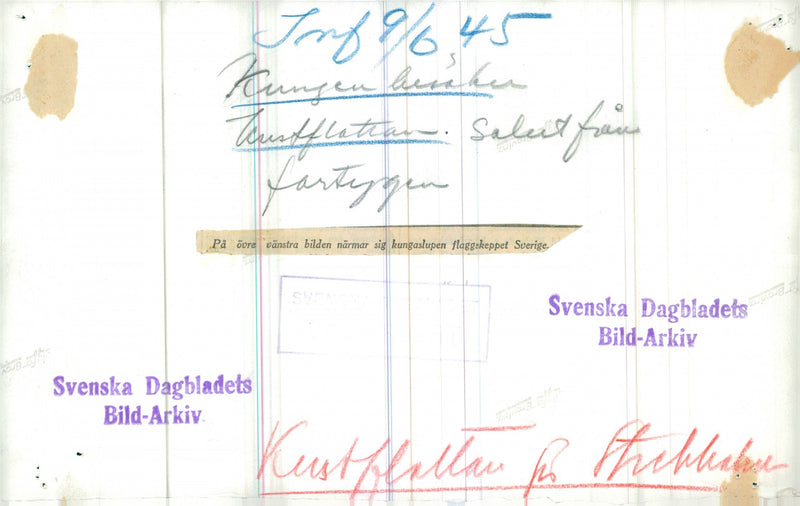 Inf 9/6 45
Kungen besöker
Kustflottan. Salut från
fartygen
På övre vänstra bilden närmar sig kungaslupen flaggskeppet Sverige.
SVENSKA
Svenska Dagbladets
Bild-Arkiv
Svenska Dagbladets
Bild-Arkiv
Kustflottan på Stockholm